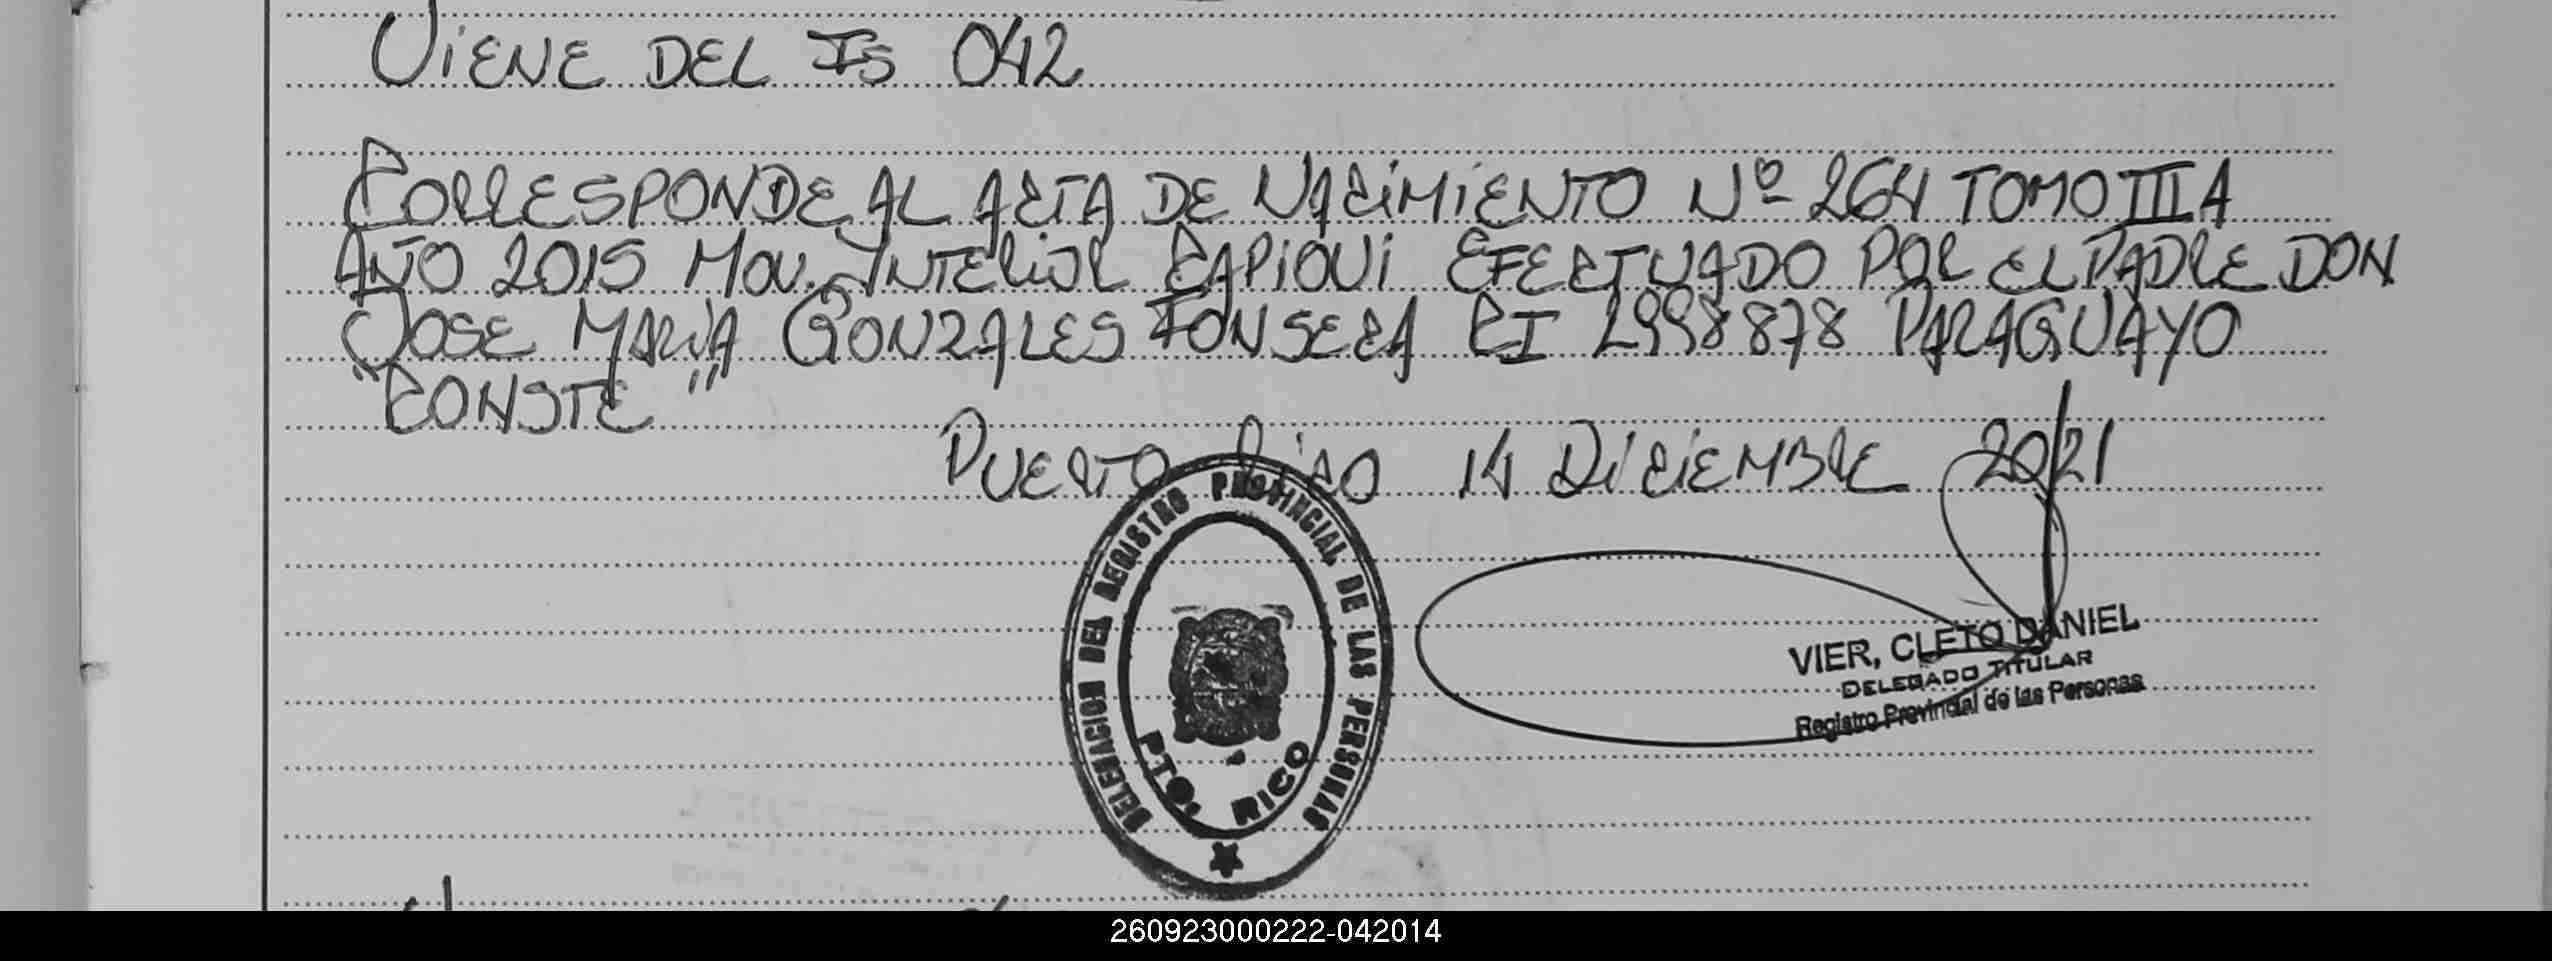 VIENE DEL FS 042
CORRESPONDE AL ACTA DE NACIMIENTO Nº 264 TOMO III A
AÑO 2015 MOV. INTERIOR CAPIOVI EFECTUADO POR EL PADRE DON
JOSE MARIA GONZALES FONSECA CI 2998878 PARAGUAYO
"CONSTE"
PUERTO RICO 14 DICIEMBRE 2021
DELEGACION DEL REGISTRO PROVINCIAL DE LAS PERSONAS
PTO. RICO
VIER, CLETO DANIEL
DELEGADO TITULAR
Registro Provincial de las Personas
260923000222-042014